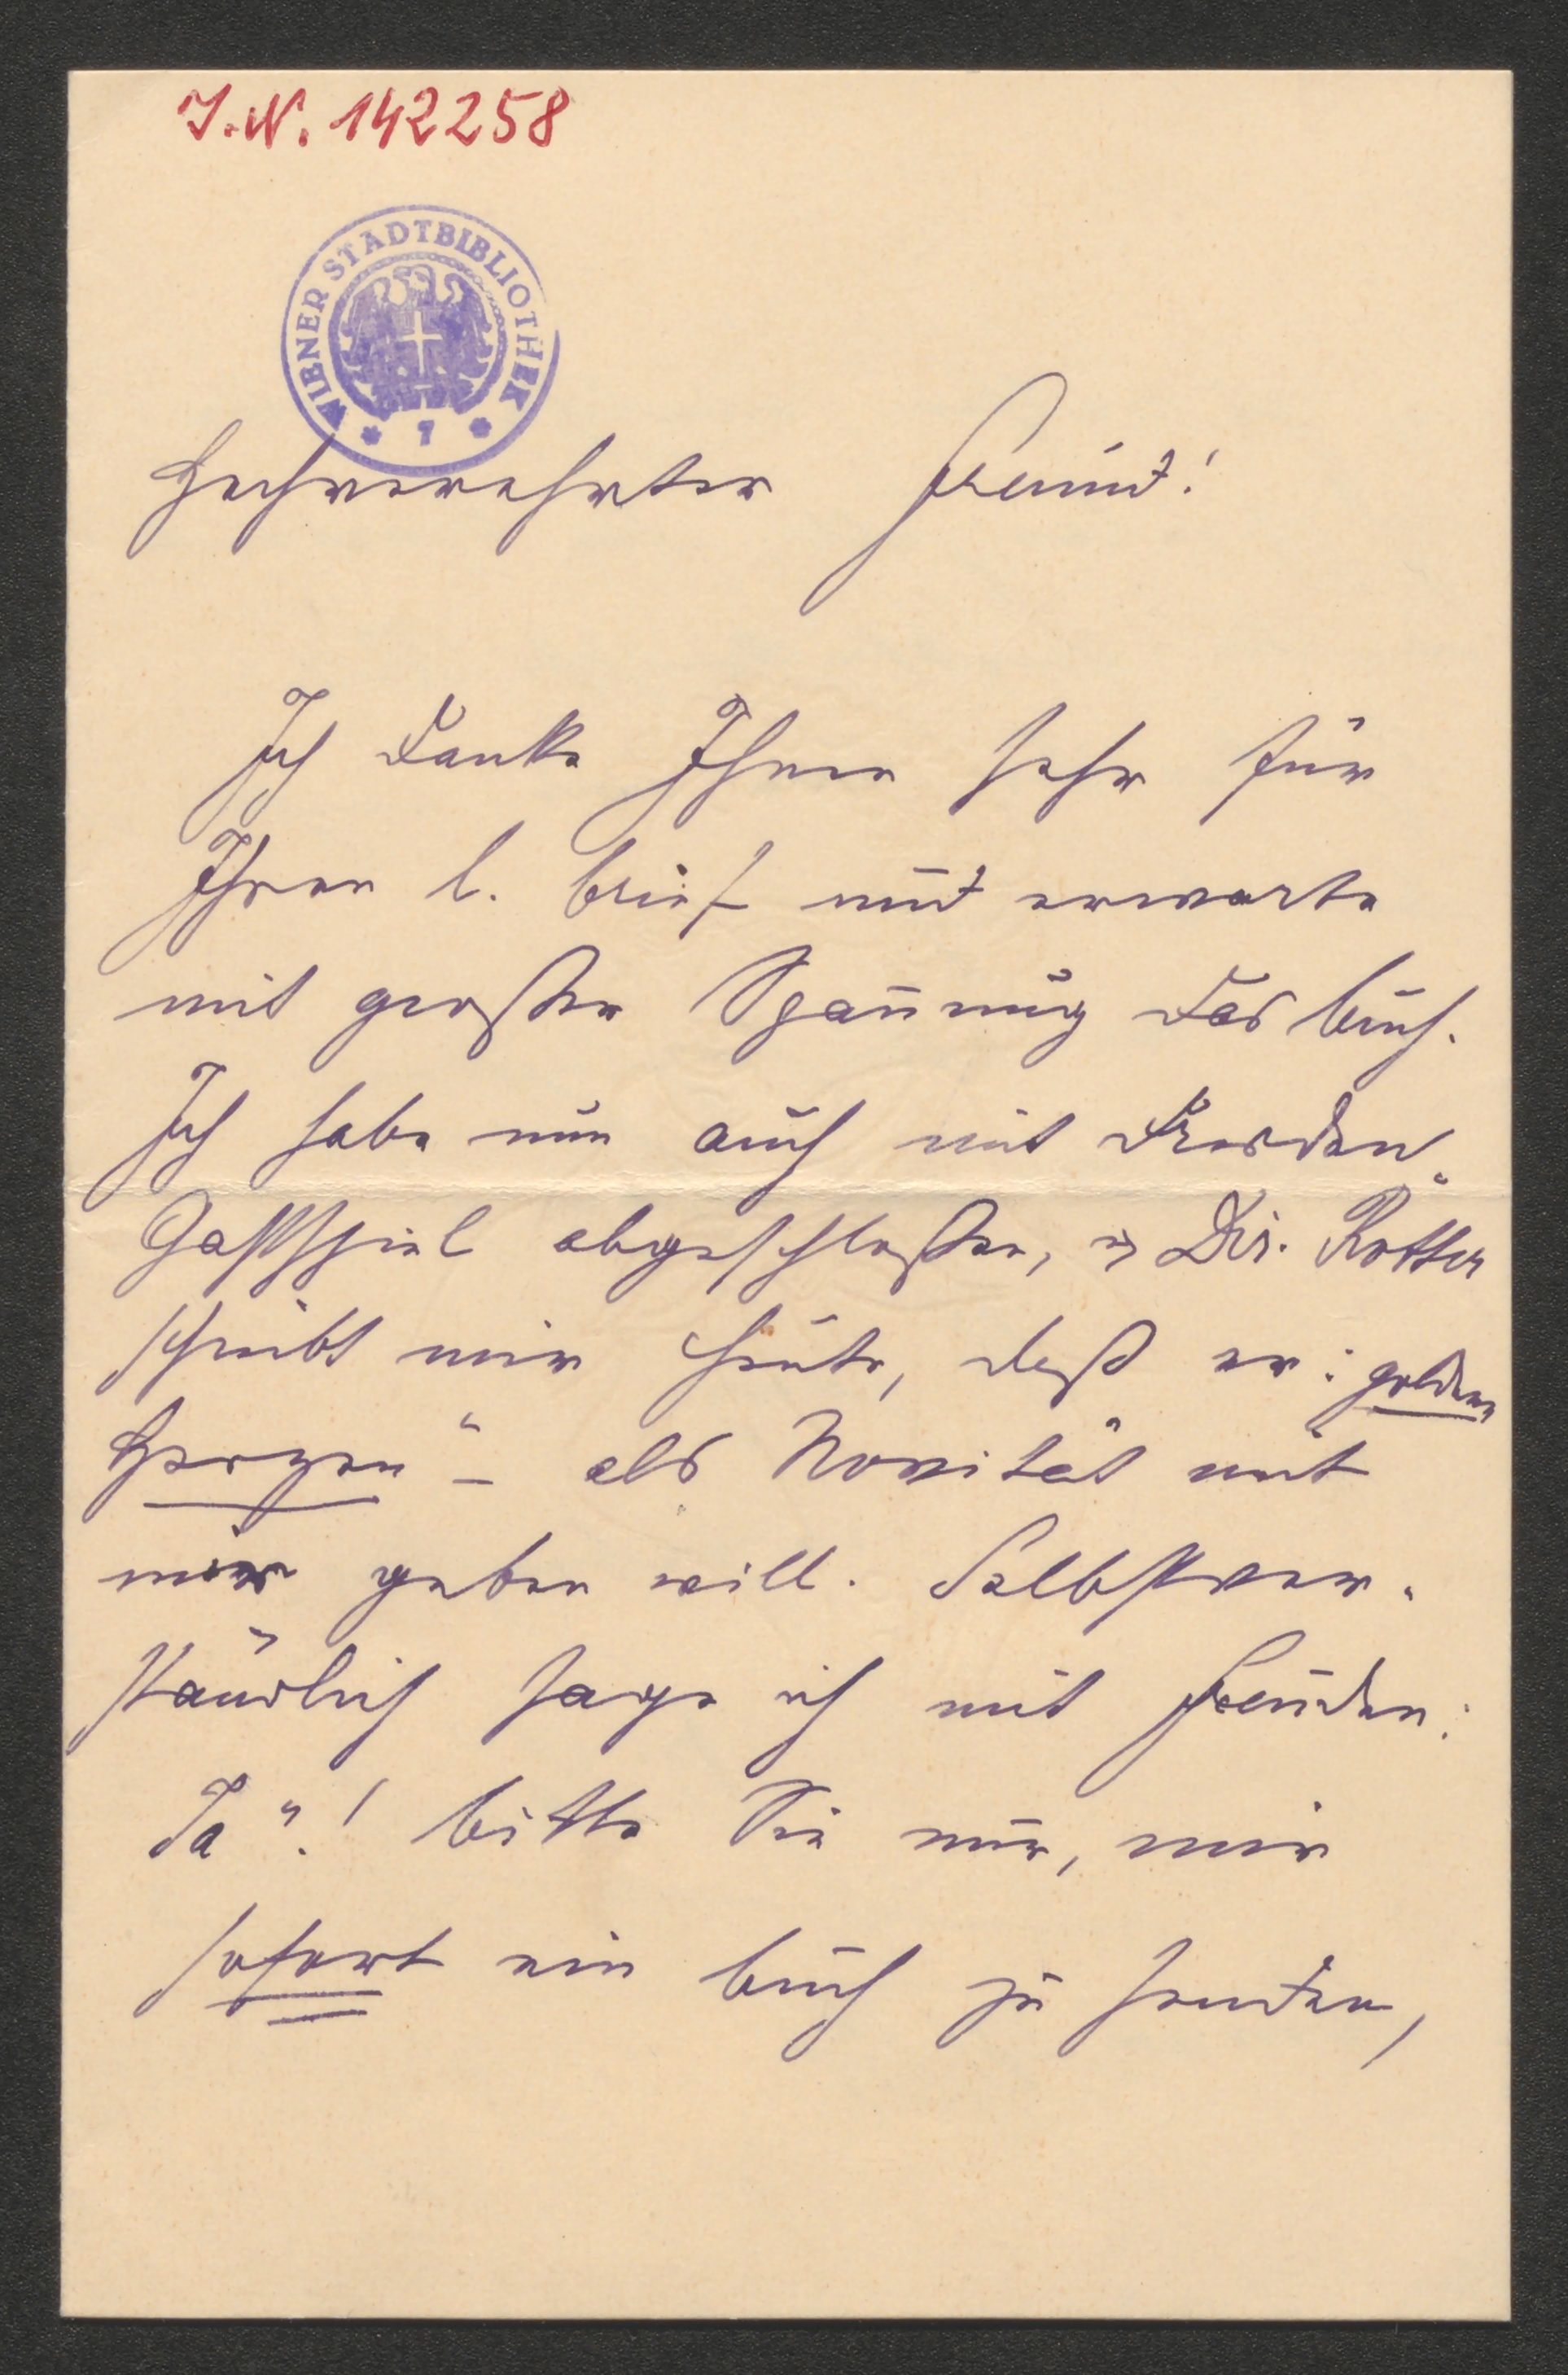 J.N. 142258
WIENER STADTBIBLIOTHEK
* 7 *
Hochverehrter Freund!
Ich danke Ihnen sehr für
Ihren l. Brief und erwarte
mit großer Spañung das Buch.
Ich habe nun auch mit Dresden
Gastspiel abgeschloßen, u Dir. Rotter
schreibt mir heute, daß er: golden
Herzen" – als Novität mit
mir geben will. Selbstver-
ständlich sage ich mit Freuden:
Ja"! bitte Sie nur, mir
sofort ein Buch zu senden,